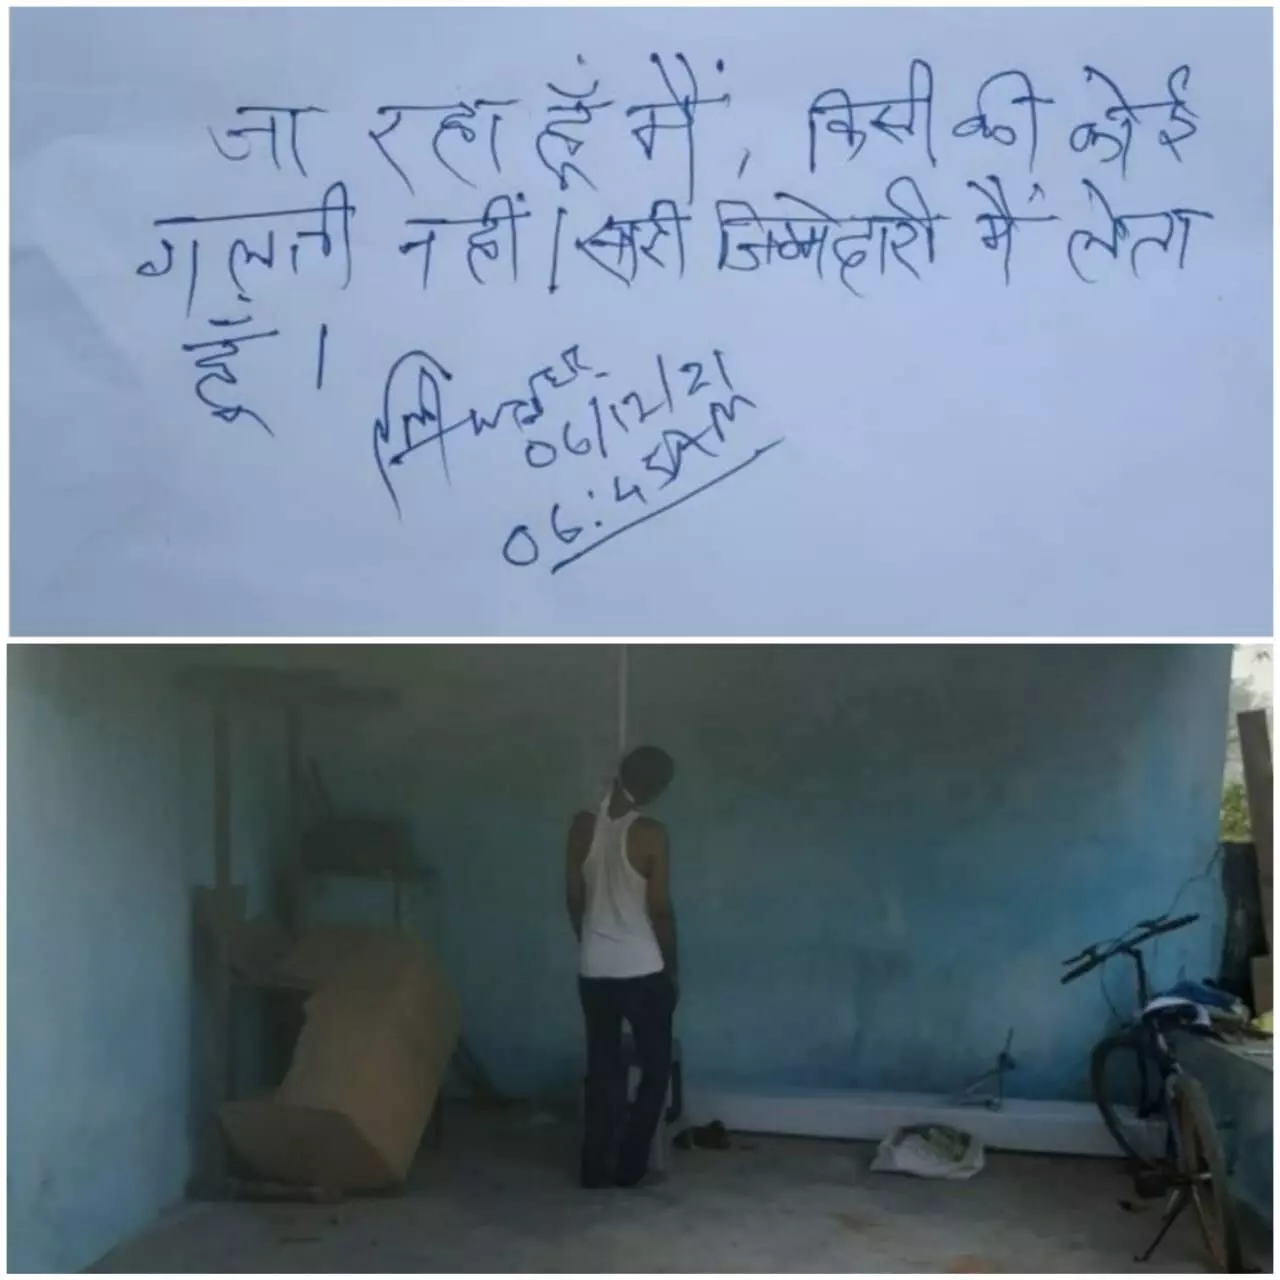 जा रहा हूँ मैं, किसी की कोई
गलती नहीं। सारी जिम्मेदारी मैं लेता
हूँ।
06/12/21
06:45AM